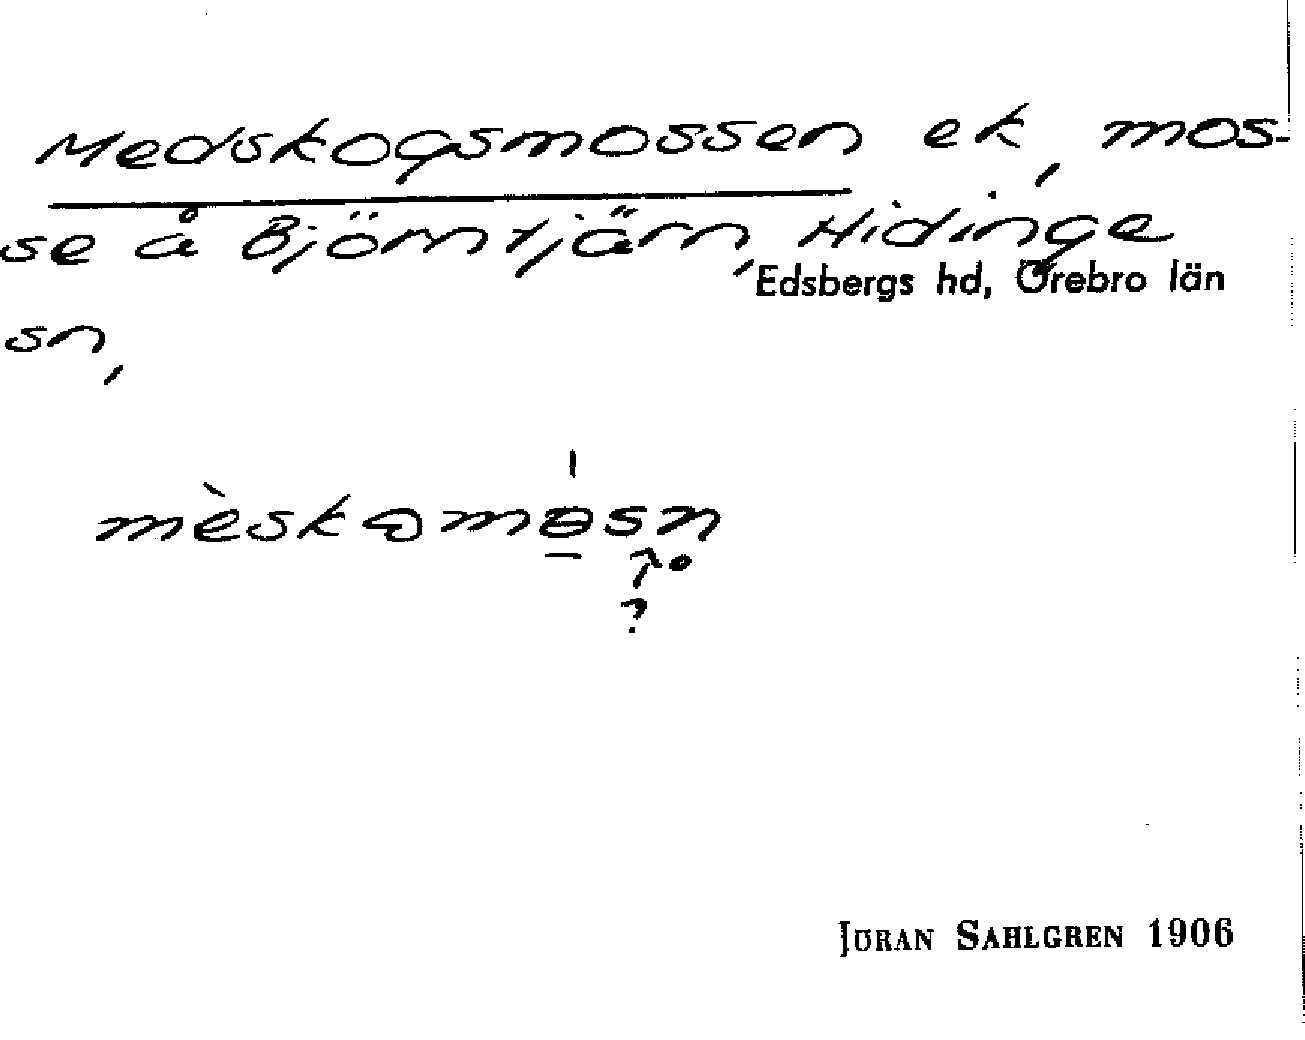 Medskogsmossen ek, mos-
se å Björntjärn, Hidinge
Edsbergs hd, Örebro län
sn,
mèskɔmɵsn
?
JÖRAN SAHLGREN 1906